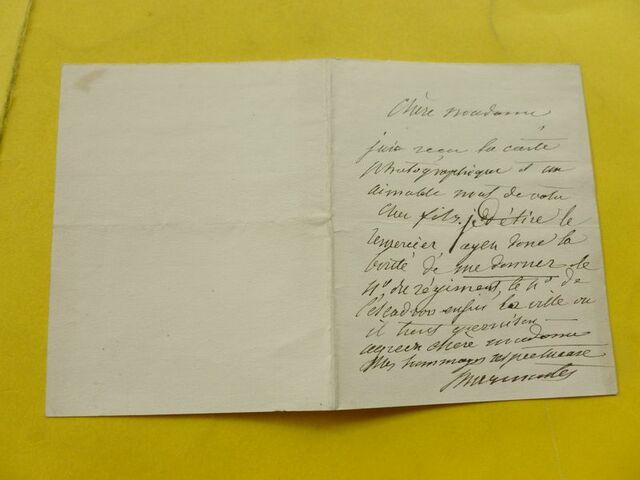 Chère madame
j'ai reçu la carte
photographique et un
aimable mot de votre
cher fils. je désire le
remercier ayez donc la
bonté de me donner le
n° du régiment, le n° de
l'escadron enfin la ville ou
il tient garnison
agréez chère madame
Mes hommages respectueux